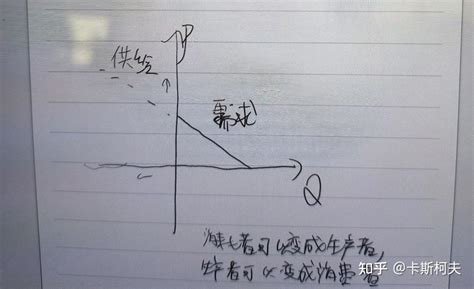 P
供给
需求
Q
消费者可以变成生产者,
生产者可以变成消费者
知乎 @卡斯柯夫